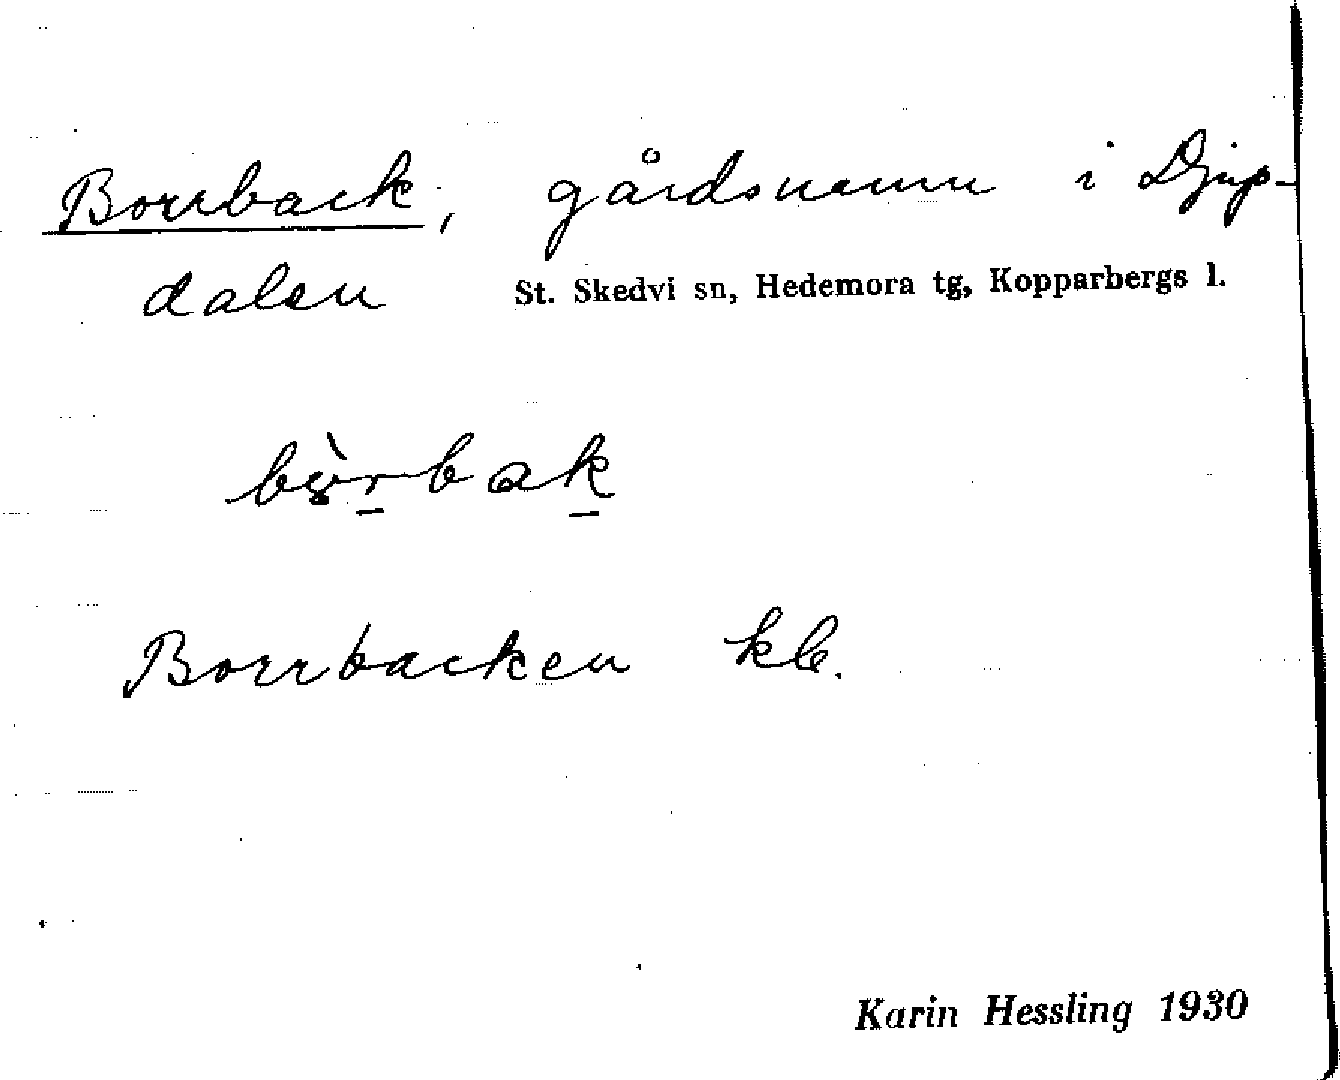 Borrback, gårdsnamn i Djup-
dalen St. Skedvi sn, Hedemora tg, Kopparbergs l.
Borrbacken kb.
Karin Hessling 1930